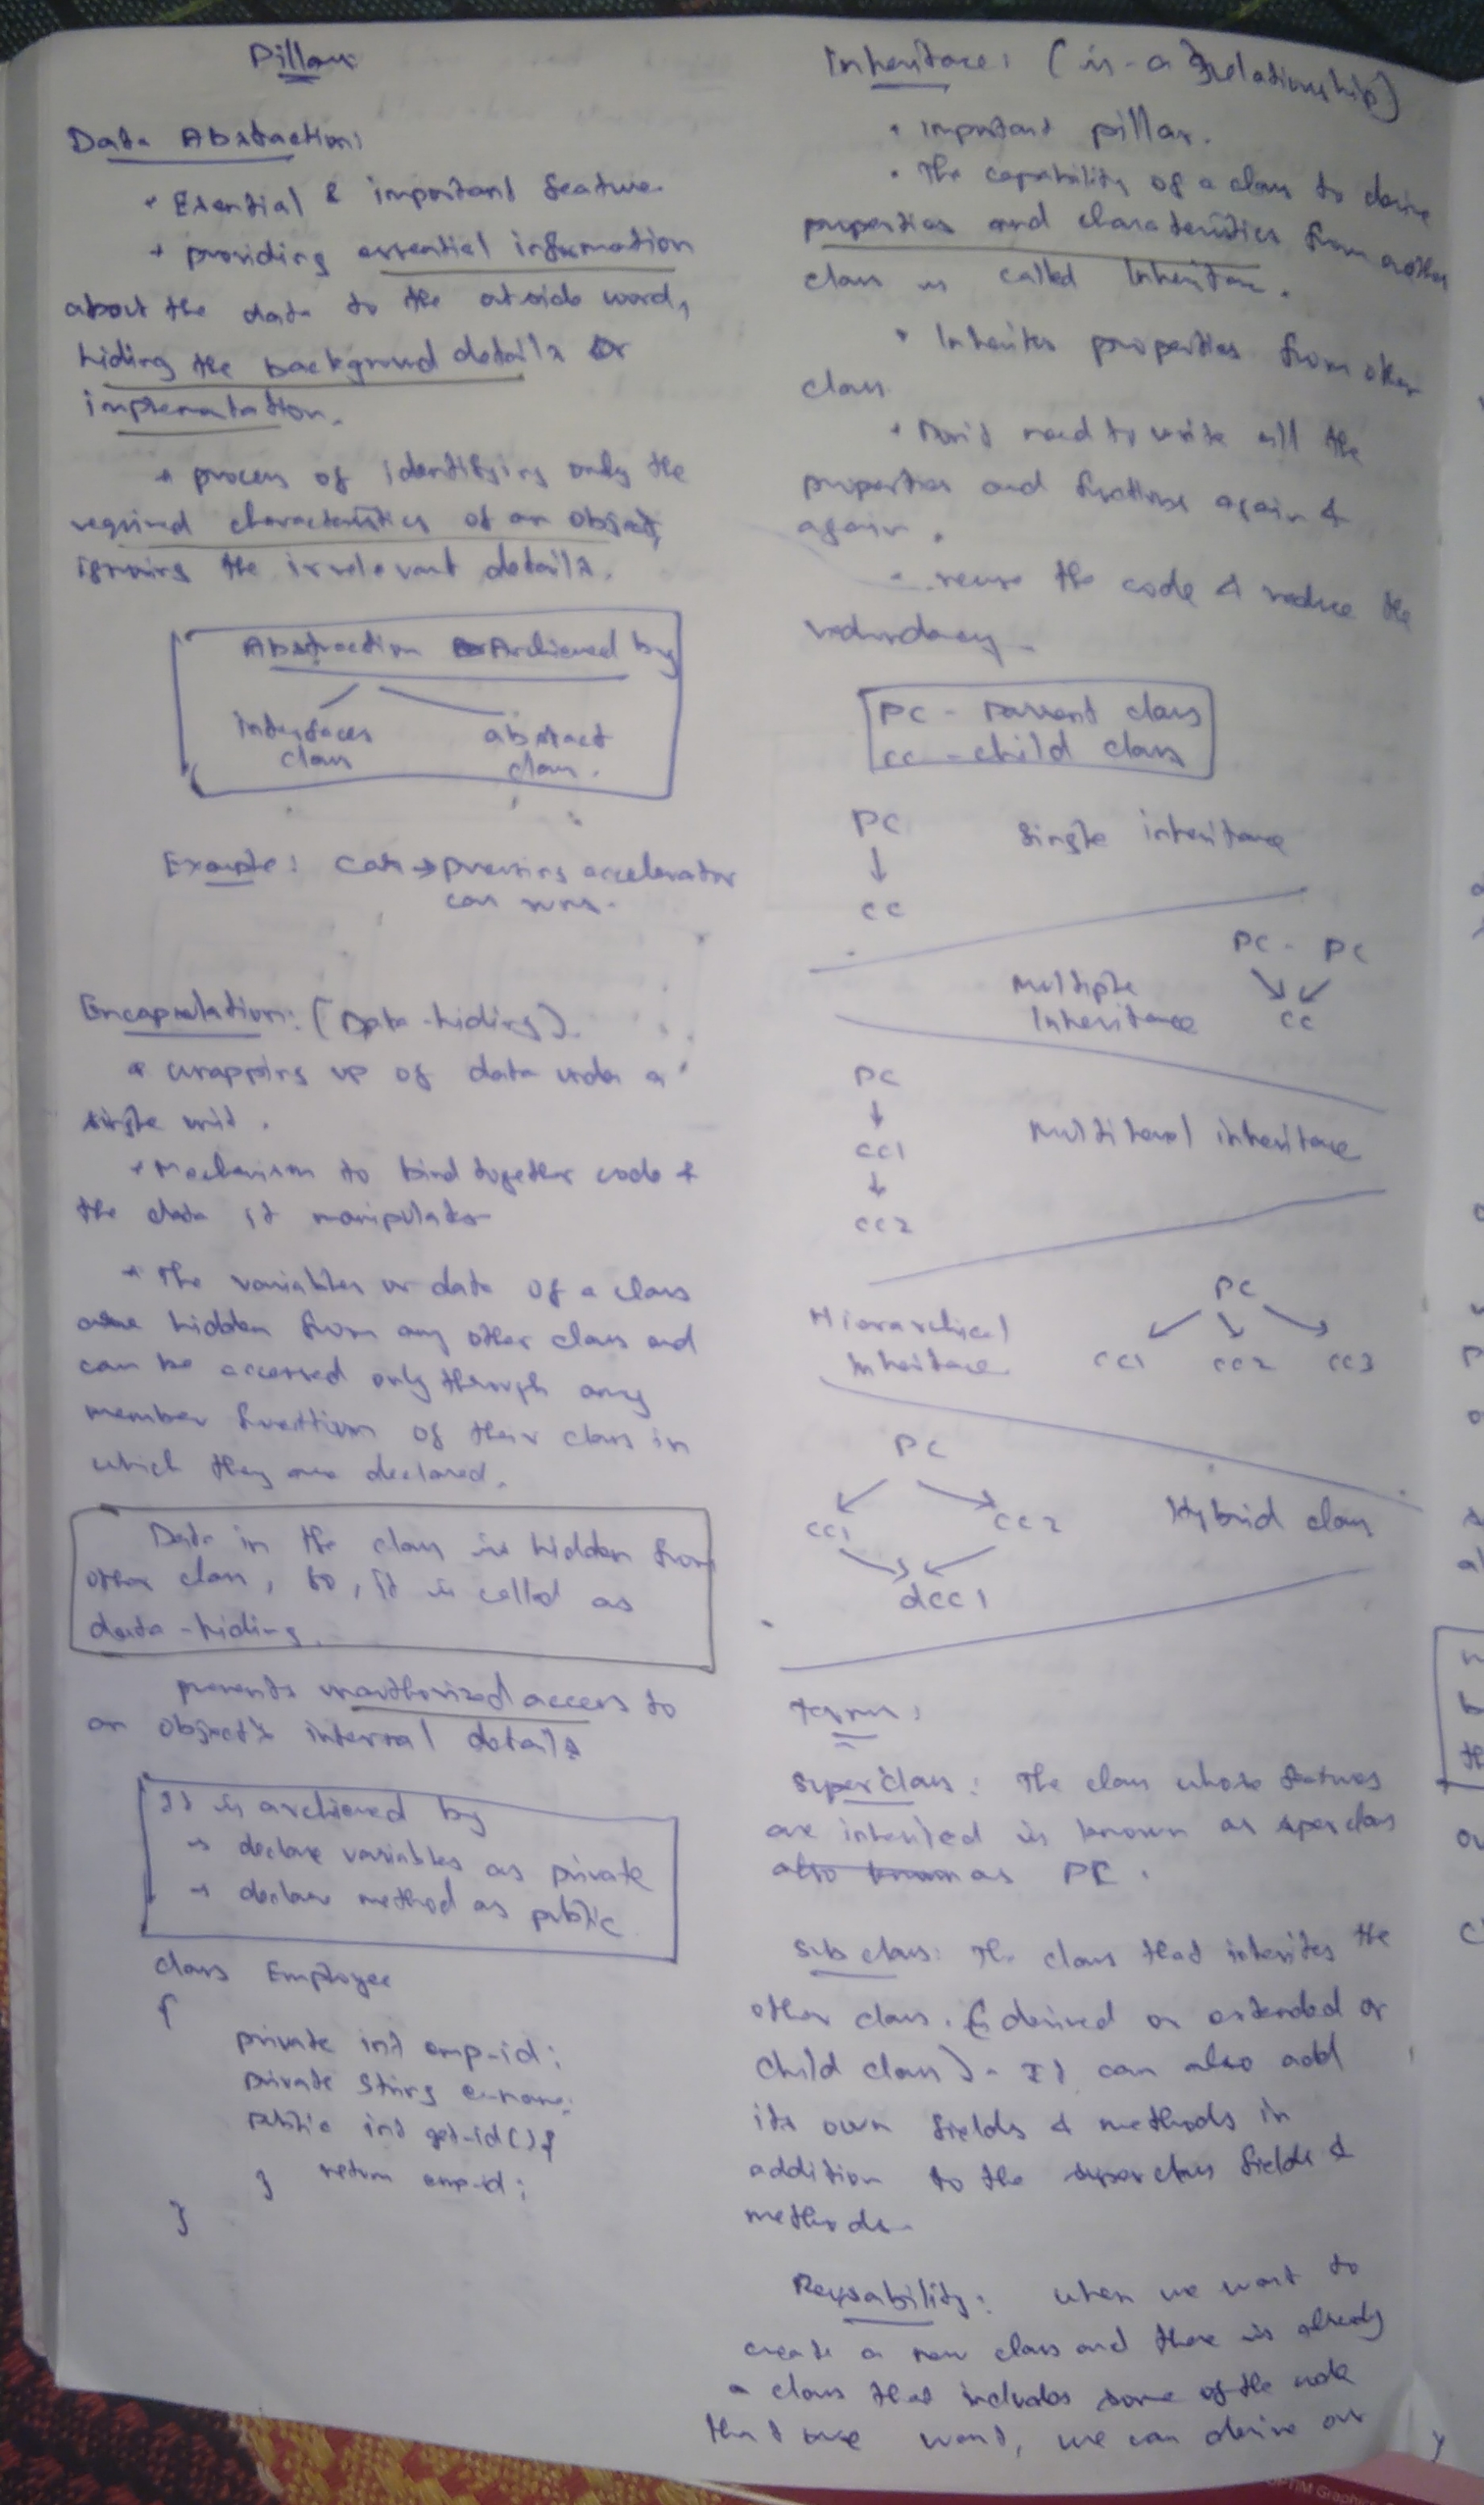 Pillars
Data Abstaction:
• Esential & important feature.
• providing essential information
about the data to the outside word,
hiding the background details or
implematation.
• process of identifying only the
required characteristics of an object,
ignoring the irrelevant details.
Abstraction Archieved by
interfaces abstract
class class.
Example: Car → pressing accelerator
car runs.
Encapsulation: (Data-hiding)
• wrapping up of data under a
single unit.
• Mechanism to bind together code &
the data it manipulates
• The variables or data of a class
are hidden from any other class and
can be accessed only through any
member function of their class in
which they are declared.
Data in the class is hidden from
other class, so, it is called as
data-hiding.
prevents unauthorized access to
an object's internal details
It is archieved by
→ declare variables as private
→ declare method as public
class Employee
{
private int emp-id;
private String e-name;
public int get-id() {
return emp-id;
}
}
Inheritace: (is-a relationship)
• important pillar.
• The capability of a class to derive
properties and characteristics from another
class is called Inheritance.
• Inherites properties from other
class
• Don't need to write all the
properties and functions again &
again.
• reuse the code & reduce the
redundancy.
PC - Parrent class
CC - child class
PC
↓
CC
Single inheritance
PC PC
Multiple
Inheritance
CC
PC
↓
CC1
↓
CC2
Multilevel inheritance
PC
Hierarchical
Inheritace
CC1 CC2 CC3
PC
CC1 CC2
Hybrid class
dCC1
Terms:
Superclass: The class whose features
are inherited is known as superclass
also known as PC.
Sub class: The class that inherites the
other class. (derived or extended or
child class). It can also add
its own fields & methods in
addition to the superclass fields &
methods.
Reusability: when we want to
create a new class and there is already
a class that includes some of the code
that we want, we can derive our